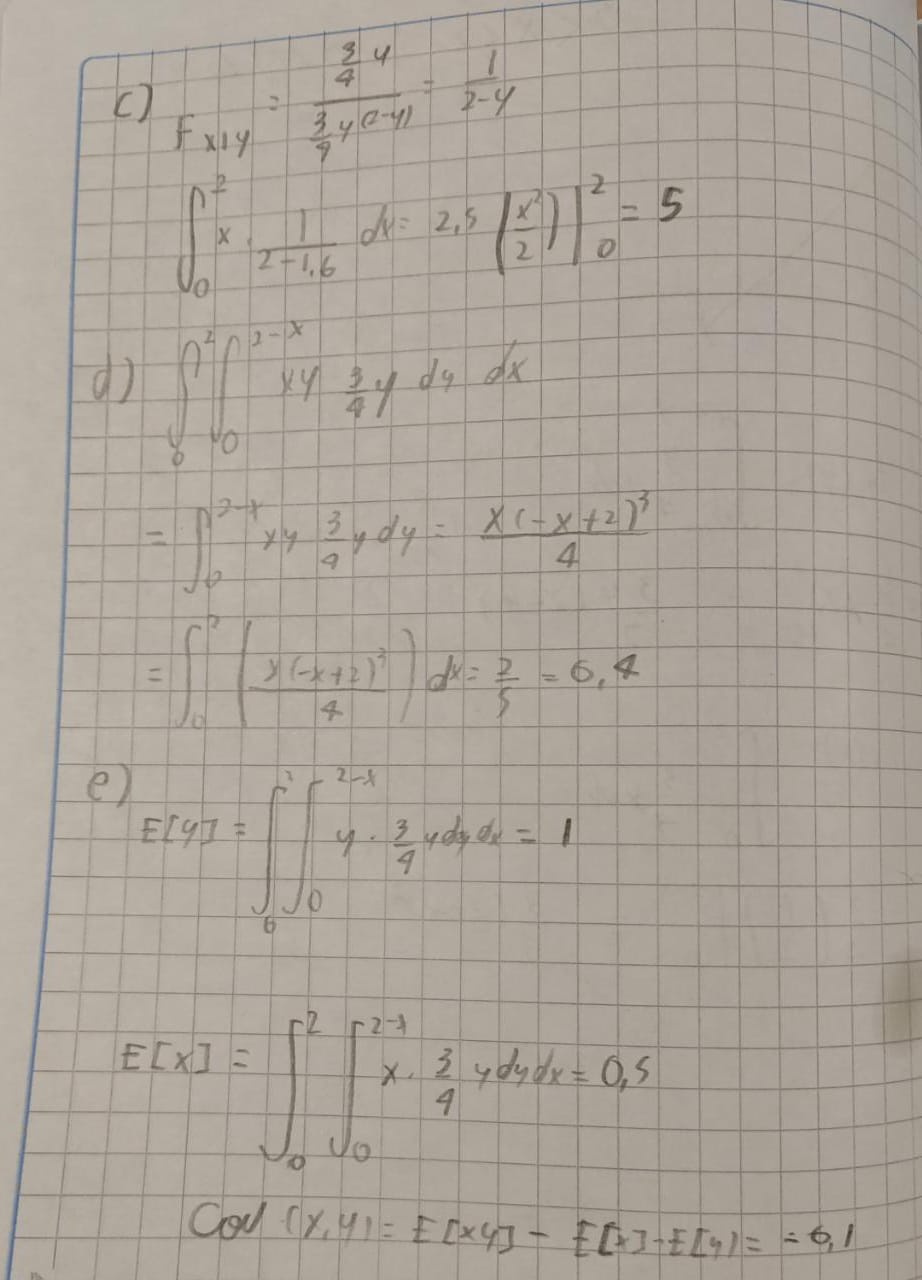 c) F x|y = (3/4 y) / (3/4 y (2-y)) = 1/(2-y)
∫₀² x · 1/(2-1,6) dx = 2,5 (x²/2) |₀² = 5
d) ∫₀² ∫₀^(2-x) xy 3/4 y dy dx
= ∫₀^(2-x) xy 3/4 y dy = x(-x+2)³/4
= ∫₀² (x(-x+2)³/4) dx = 2/5 = 0,4
e)
E[y] = ∫₀² ∫₀^(2-x) y · 3/4 y dy dx = 1
E[x] = ∫₀² ∫₀^(2-x) x · 3/4 y dy dx = 0,5
Cov (x,y) = E[xy] - E[x]·E[y] = -0,1